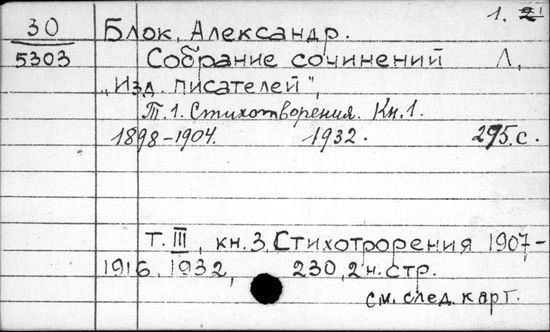 1.
30 Блок, Александр.
5303 Собрание сочинений Л,
„Изд. писателей",
Т.1. Стихотворения. Кн.1.
1898-1904. 1932. 295.с.
Т. III, кн. 3, Стихотрорения 1907-
1916, 1932, 230,2 н. стр.
см. след. карт.